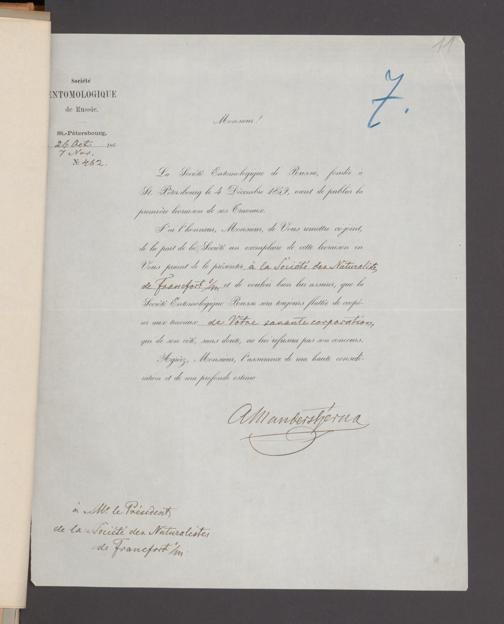 11
7.
Société
ENTOMOLOGIQUE
de Russie.
St.-Pétersbourg,
26 Oct. 186
7 Nov.
№ 462.
Monsieur!
La Société Entomologique de Russie, fondée à
St. Pétersbourg le 4 Décembre 1859, vient de publier la
première livraison de ses Travaux.
J'ai l'honneur, Monsieur, de Vous remettre ci-joint,
de la part de la Société un exemplaire de cette livraison en
Vous priant de le présenter à la Société des Naturalistes
de Francfort s/m et de vouloir bien lui assurer, que la
Société Entomologique Russe sera toujours flattée de coopé-
rer aux travaux de Votre savante corporation,
qui de son côté, sans doute, ne lui refusera pas son concours.
Agréez, Monsieur, l'assurance de ma haute considé-
ration et de ma profonde estime
AManderstjerna
à Mr. le Président
de la Société des Naturalistes
de Francfort s/m.